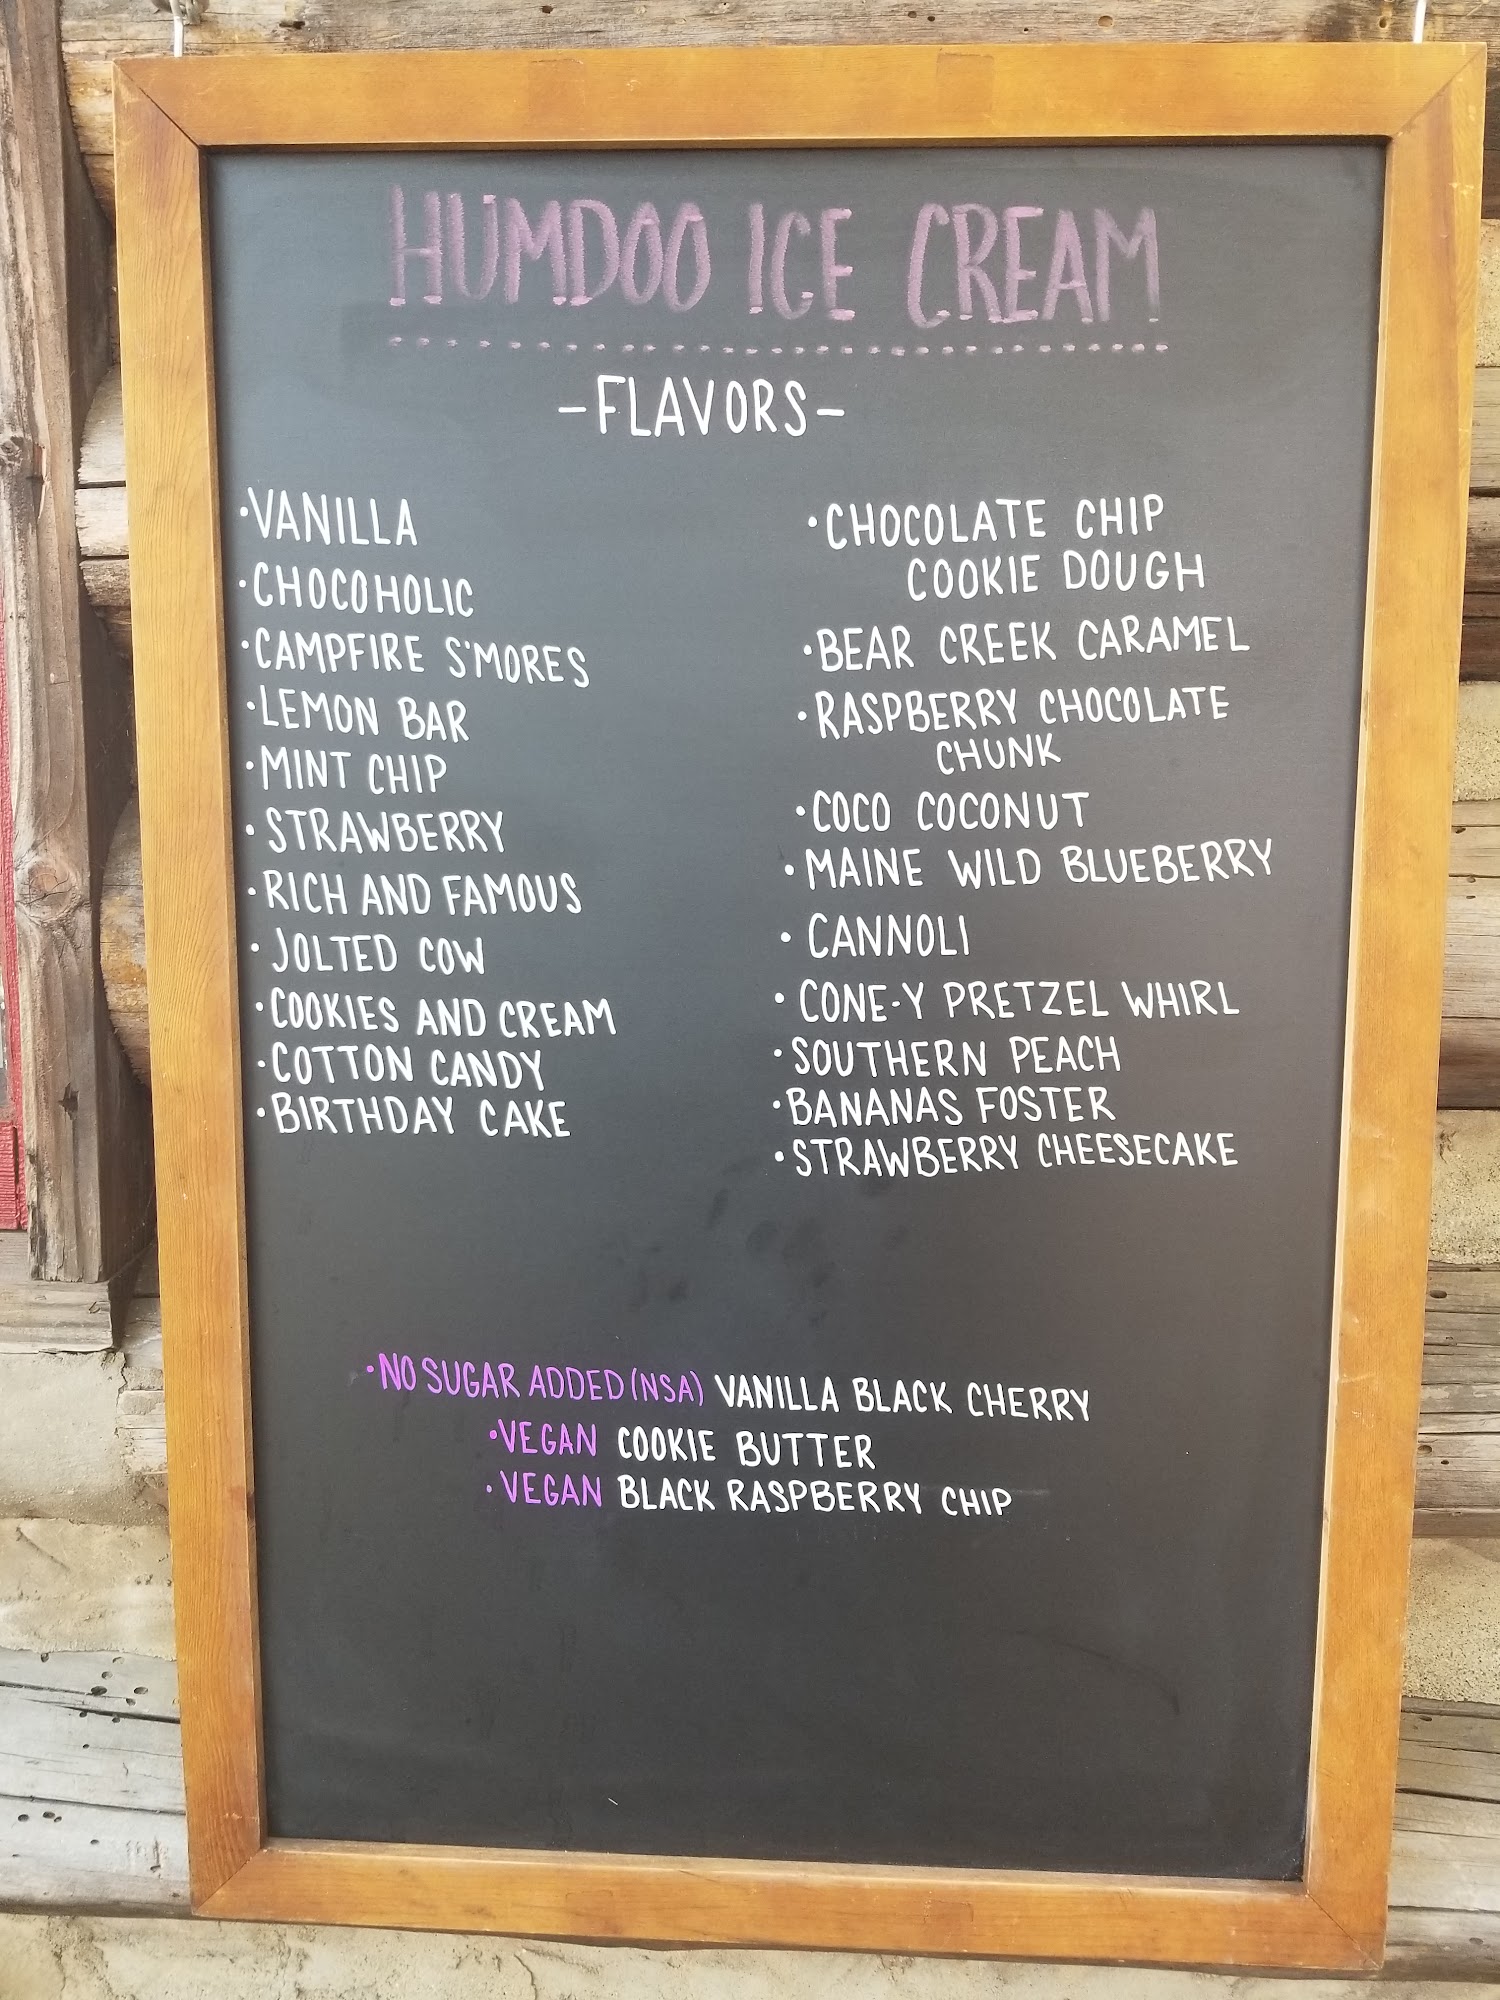 HUMDOO ICE CREAM
-FLAVORS-
·VANILLA
·CHOCOHOLIC
·CAMPFIRE S'MORES
·LEMON BAR
·MINT CHIP
·STRAWBERRY
·RICH AND FAMOUS
·JOLTED COW
·COOKIES AND CREAM
·COTTON CANDY
·BIRTHDAY CAKE
·CHOCOLATE CHIP
COOKIE DOUGH
·BEAR CREEK CARAMEL
·RASPBERRY CHOCOLATE
CHUNK
·COCO COCONUT
·MAINE WILD BLUEBERRY
·CANNOLI
·CONE-Y PRETZEL WHIRL
·SOUTHERN PEACH
·BANANAS FOSTER
·STRAWBERRY CHEESECAKE
·NO SUGAR ADDED (NSA) VANILLA BLACK CHERRY
·VEGAN COOKIE BUTTER
·VEGAN BLACK RASPBERRY CHIP